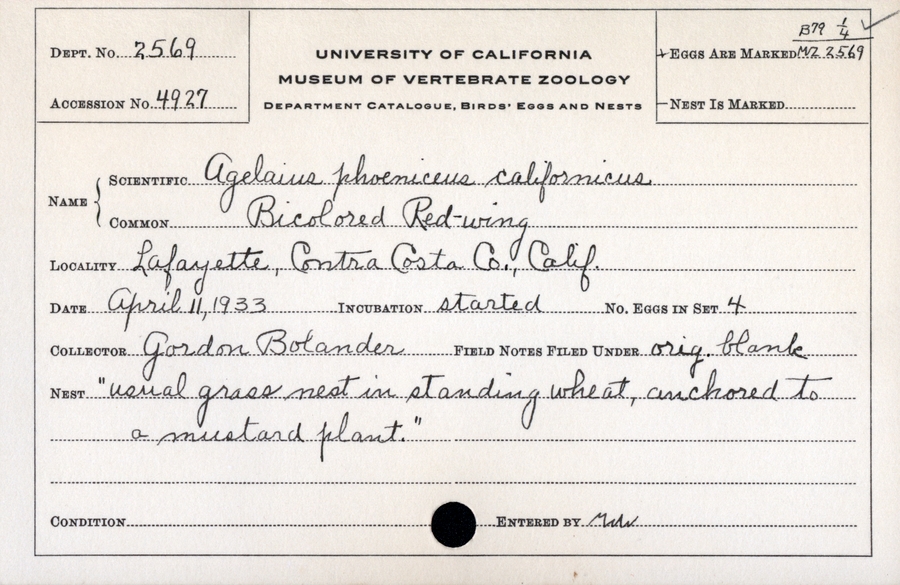 B79 1/4 ✓
Dept. No. 2569
UNIVERSITY OF CALIFORNIA
MUSEUM OF VERTEBRATE ZOOLOGY
Department Catalogue, Birds' Eggs and Nests
Eggs Are Marked MVZ 2569
Accession No. 4927
Nest Is Marked
Name
Scientific Agelaius phoeniceus californicus
Common Bicolored Red-wing
Locality Lafayette, Contra Costa Co., Calif.
Date April 11, 1933 Incubation started No. Eggs in Set 4
Collector Gordon Bolander Field Notes Filed Under orig. blank
Nest "usual grass nest in standing wheat, anchored to
a mustard plant."
Condition Entered by